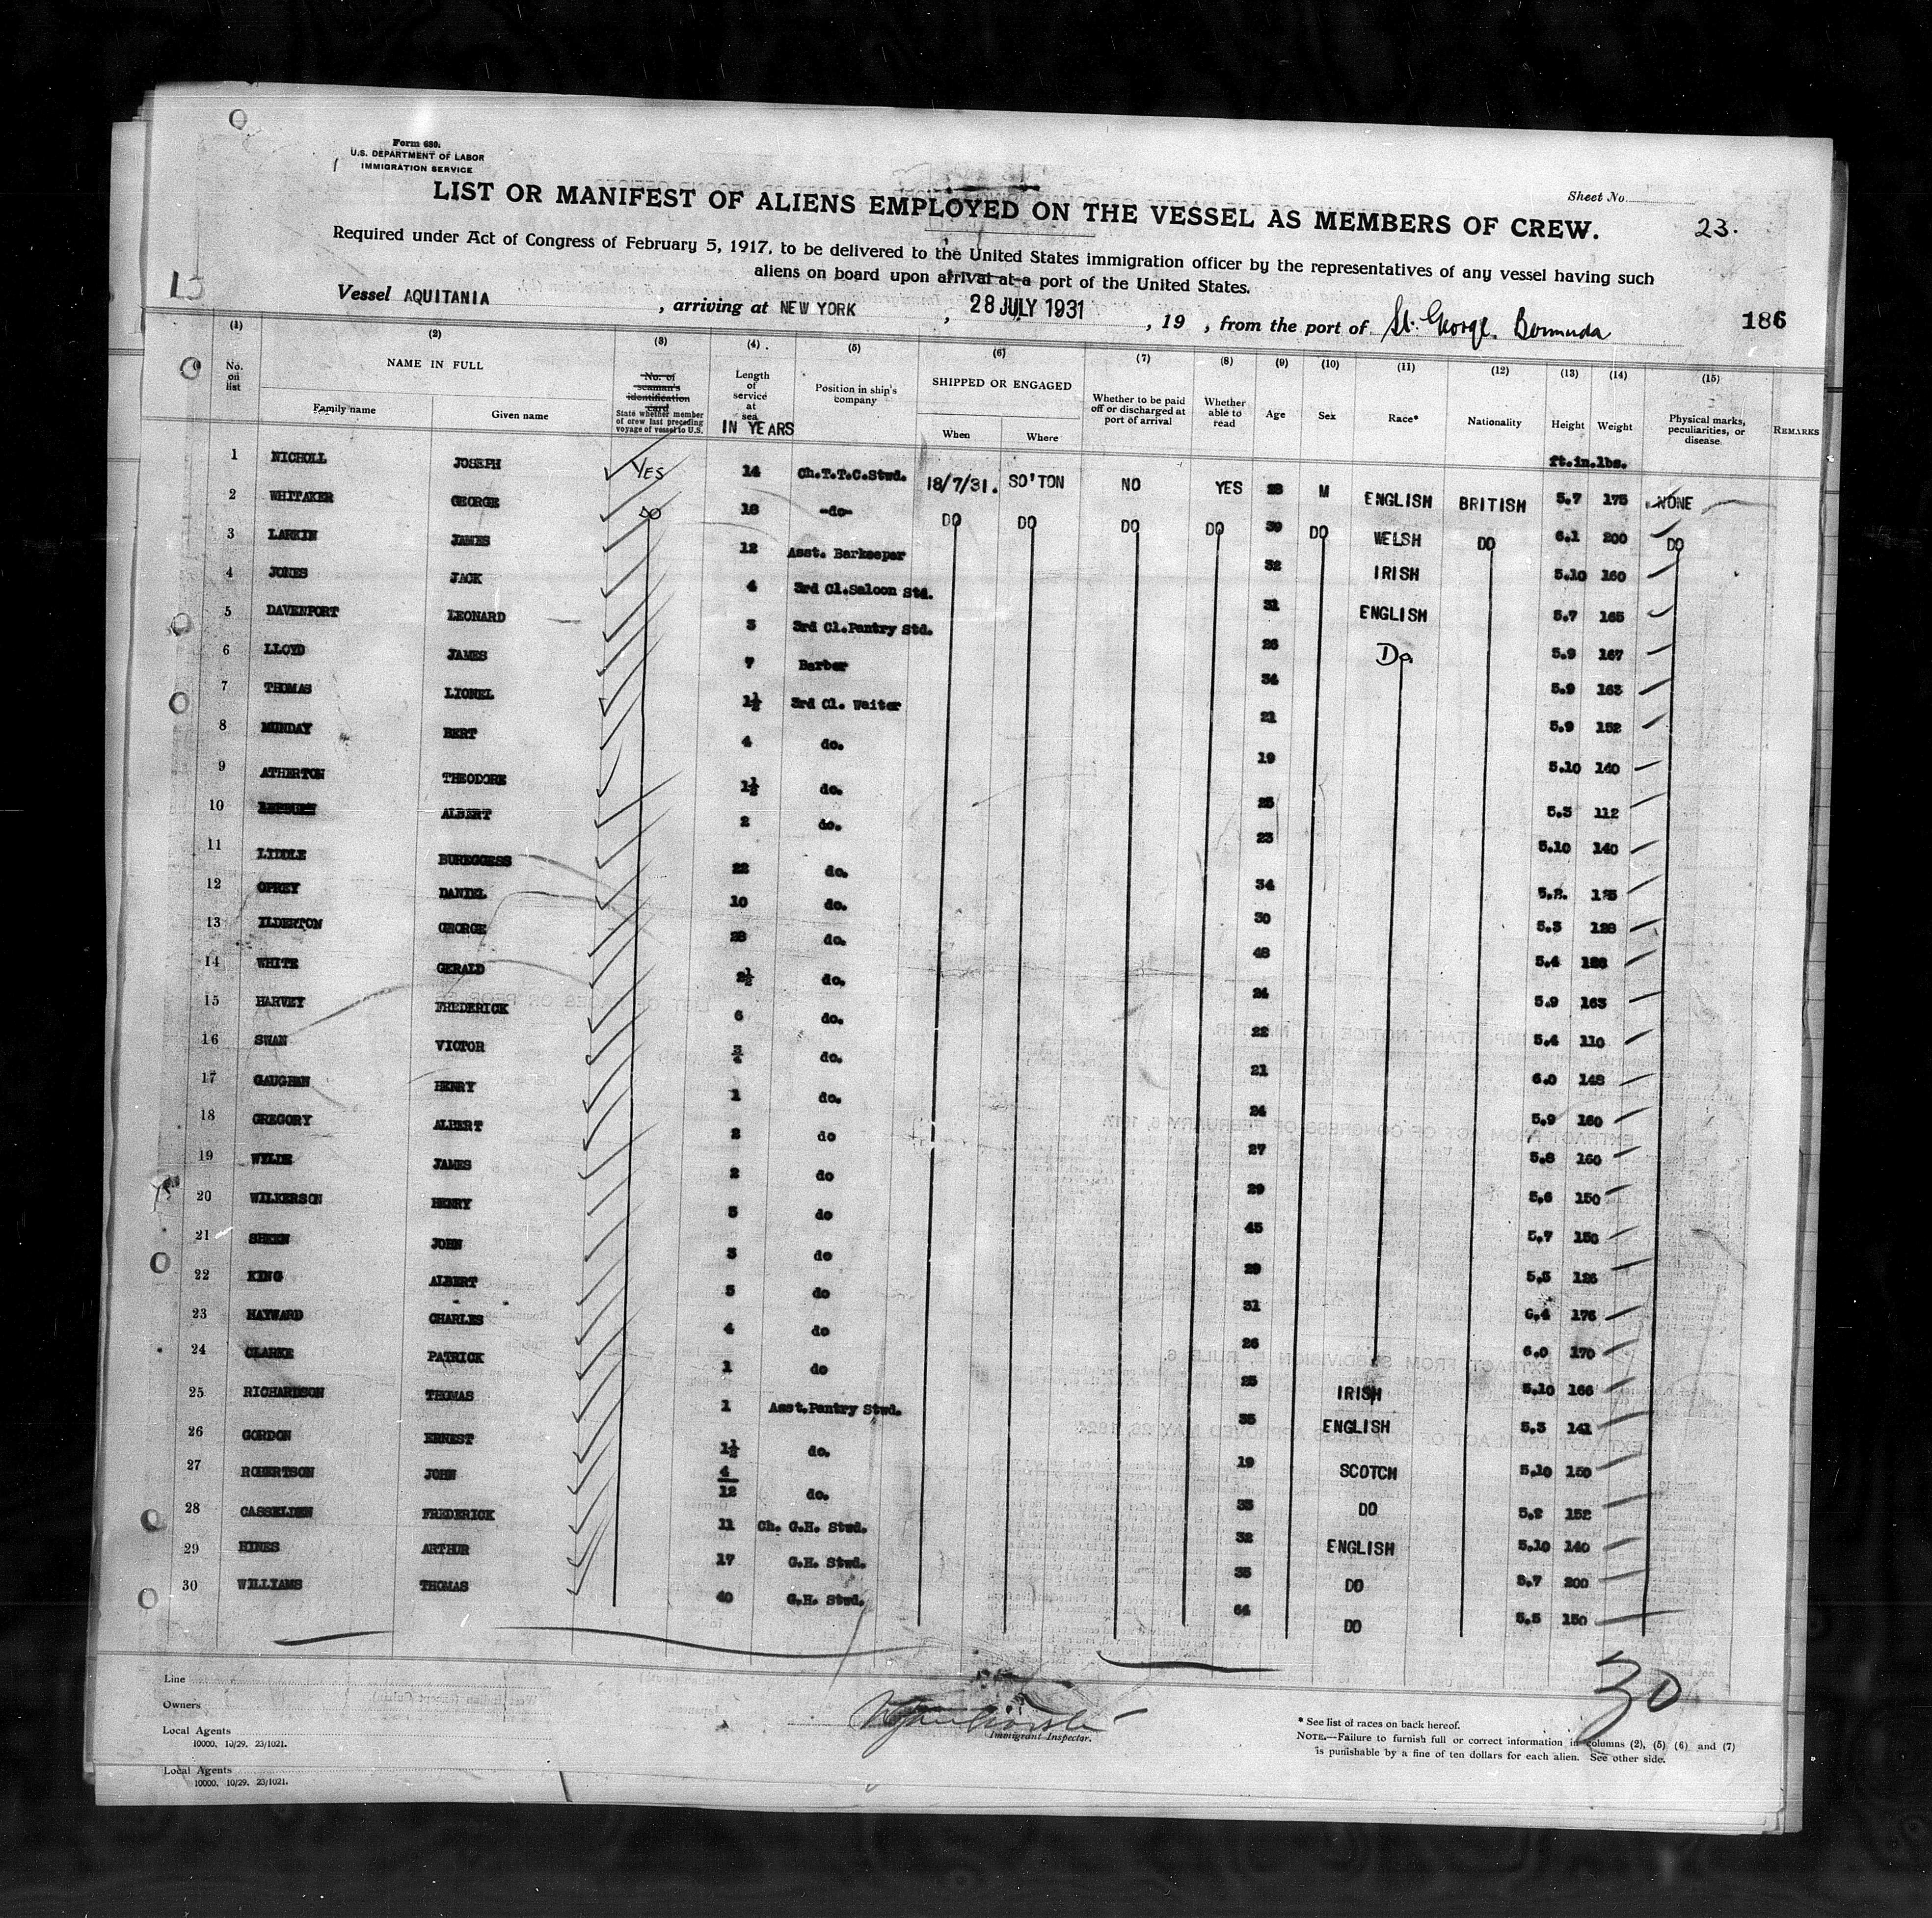 Form 680.
U.S. DEPARTMENT OF LABOR
IMMIGRATION SERVICE
Sheet No.
LIST OR MANIFEST OF ALIENS EMPLOYED ON THE VESSEL AS MEMBERS OF CREW.
23.
Required under Act of Congress of February 5, 1917, to be delivered to the United States immigration officer by the representatives of any vessel having such
aliens on board upon arrival at a port of the United States.
Vessel AQUITANIA, arriving at NEW YORK, 28 JULY 1931, 19 , from the port of St. George. Bermuda
186
(1) (2) (3) (4) (5) (6) (7) (8) (9) (10) (11) (12) (13) (14) (15)
No. on list NAME IN FULL Family name Given name No. of seaman's identification card State whether member of crew last preceding voyage of vessel to U.S. Length of service at sea IN YEARS Position in ship's company SHIPPED OR ENGAGED When Where Whether to be paid off or discharged at port of arrival Whether able to read Age Sex Race* Nationality Height Weight Physical marks, peculiarities, or disease REMARKS
ft.in.lbs.
1 NICHOLL JOSEPH YES 14 Ch.T.T.C.Stwd. 18/7/31. SO'TON NO YES M ENGLISH BRITISH 5.7 175 NONE
2 WHITAKER GEORGE DO 18 -do- DO DO DO DO 39 DO WELSH DO 6.1 200 DO
3 LARKIN JAMES 12 Asst. Barkeeper 32 IRISH 5.10 160
4 JONES JACK 4 3rd Cl.Saloon Std. 31 ENGLISH 5.7 165
5 DAVENPORT LEONARD 3rd Cl.Pantry Std. 26 Do 5.9 167
6 LLOYD JAMES 7 Barber 34 5.9 163
7 THOMAS LIONEL 1½ 3rd Cl. Waiter 21 5.9 152
8 MUNDAY BERT 4 do. 19 5.10 140
9 ATHERTON THEODORE 1½ do. 25 5.3 112
10 ALBERT 2 do. 23 5.10 140
11 LIDDLE BUREGGESS 22 do. 34 5.2.
12 OPREY DANIEL 10 do. 30 5.3 128
13 ILDERTON GEORGE 28 do. 48 5.4
14 WHITE GERALD 2½ do. 24 5.9 163
15 HARVEY FREDERICK 6 do. 22 5.4 110
16 SWAN VICTOR ¾ do. 21 6.0 148
17 GAUGHAN HENRY 1 do. 24 5.9 160
18 GREGORY ALBERT 2 do 27 5.8 160
19 WYLIE JAMES 2 do 29 5.6 150
20 WILKERSON HENRY 5 do 45 5.7
21 SHEEN JOHN 3 do 29 5.5 126
22 KING ALBERT 5 do 31 6.4 176
23 HAYWARD CHARLES 4 do 26 6.0 170
24 CLARKE PATRICK 1 do 25 IRISH 5.10 166
25 RICHARDSON THOMAS 1 Asst.Pantry Stwd. 35 ENGLISH 5.3 141
26 GORDON ERNEST 1½ do. 19 SCOTCH 5.10 150
27 ROBERTSON JOHN 4/12 do. 33 DO 5.2 152
28 CASSELDEN FREDERICK 11 Ch. G.H. Stwd. 32 ENGLISH 5.10 140
29 HINES ARTHUR 17 G.H. Stwd. 35 DO 5.7 200
30 WILLIAMS THOMAS 40 G.H. Stwd. 64 DO 5.5 150
30
Line
Owners
Local Agents
10000. 10/29. 23/1021.
Immigrant Inspector.
* See list of races on back hereof.
NOTE.—Failure to furnish full or correct information in columns (2), (5) (6) and (7)
is punishable by a fine of ten dollars for each alien. See other side.
Local Agents
10000. 10/29. 23/1021.